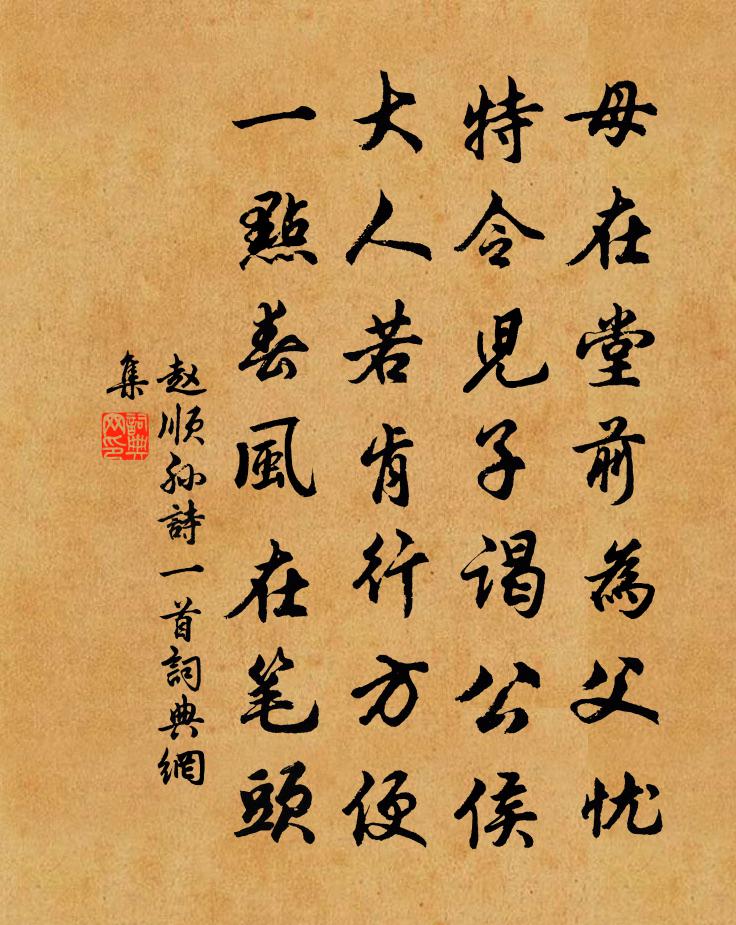 母在堂前為父忧
特令児子谒公侯
大人若肯行方便
一點春風在笔頭
赵顺孙詩一首詞典網
集
詞典網印